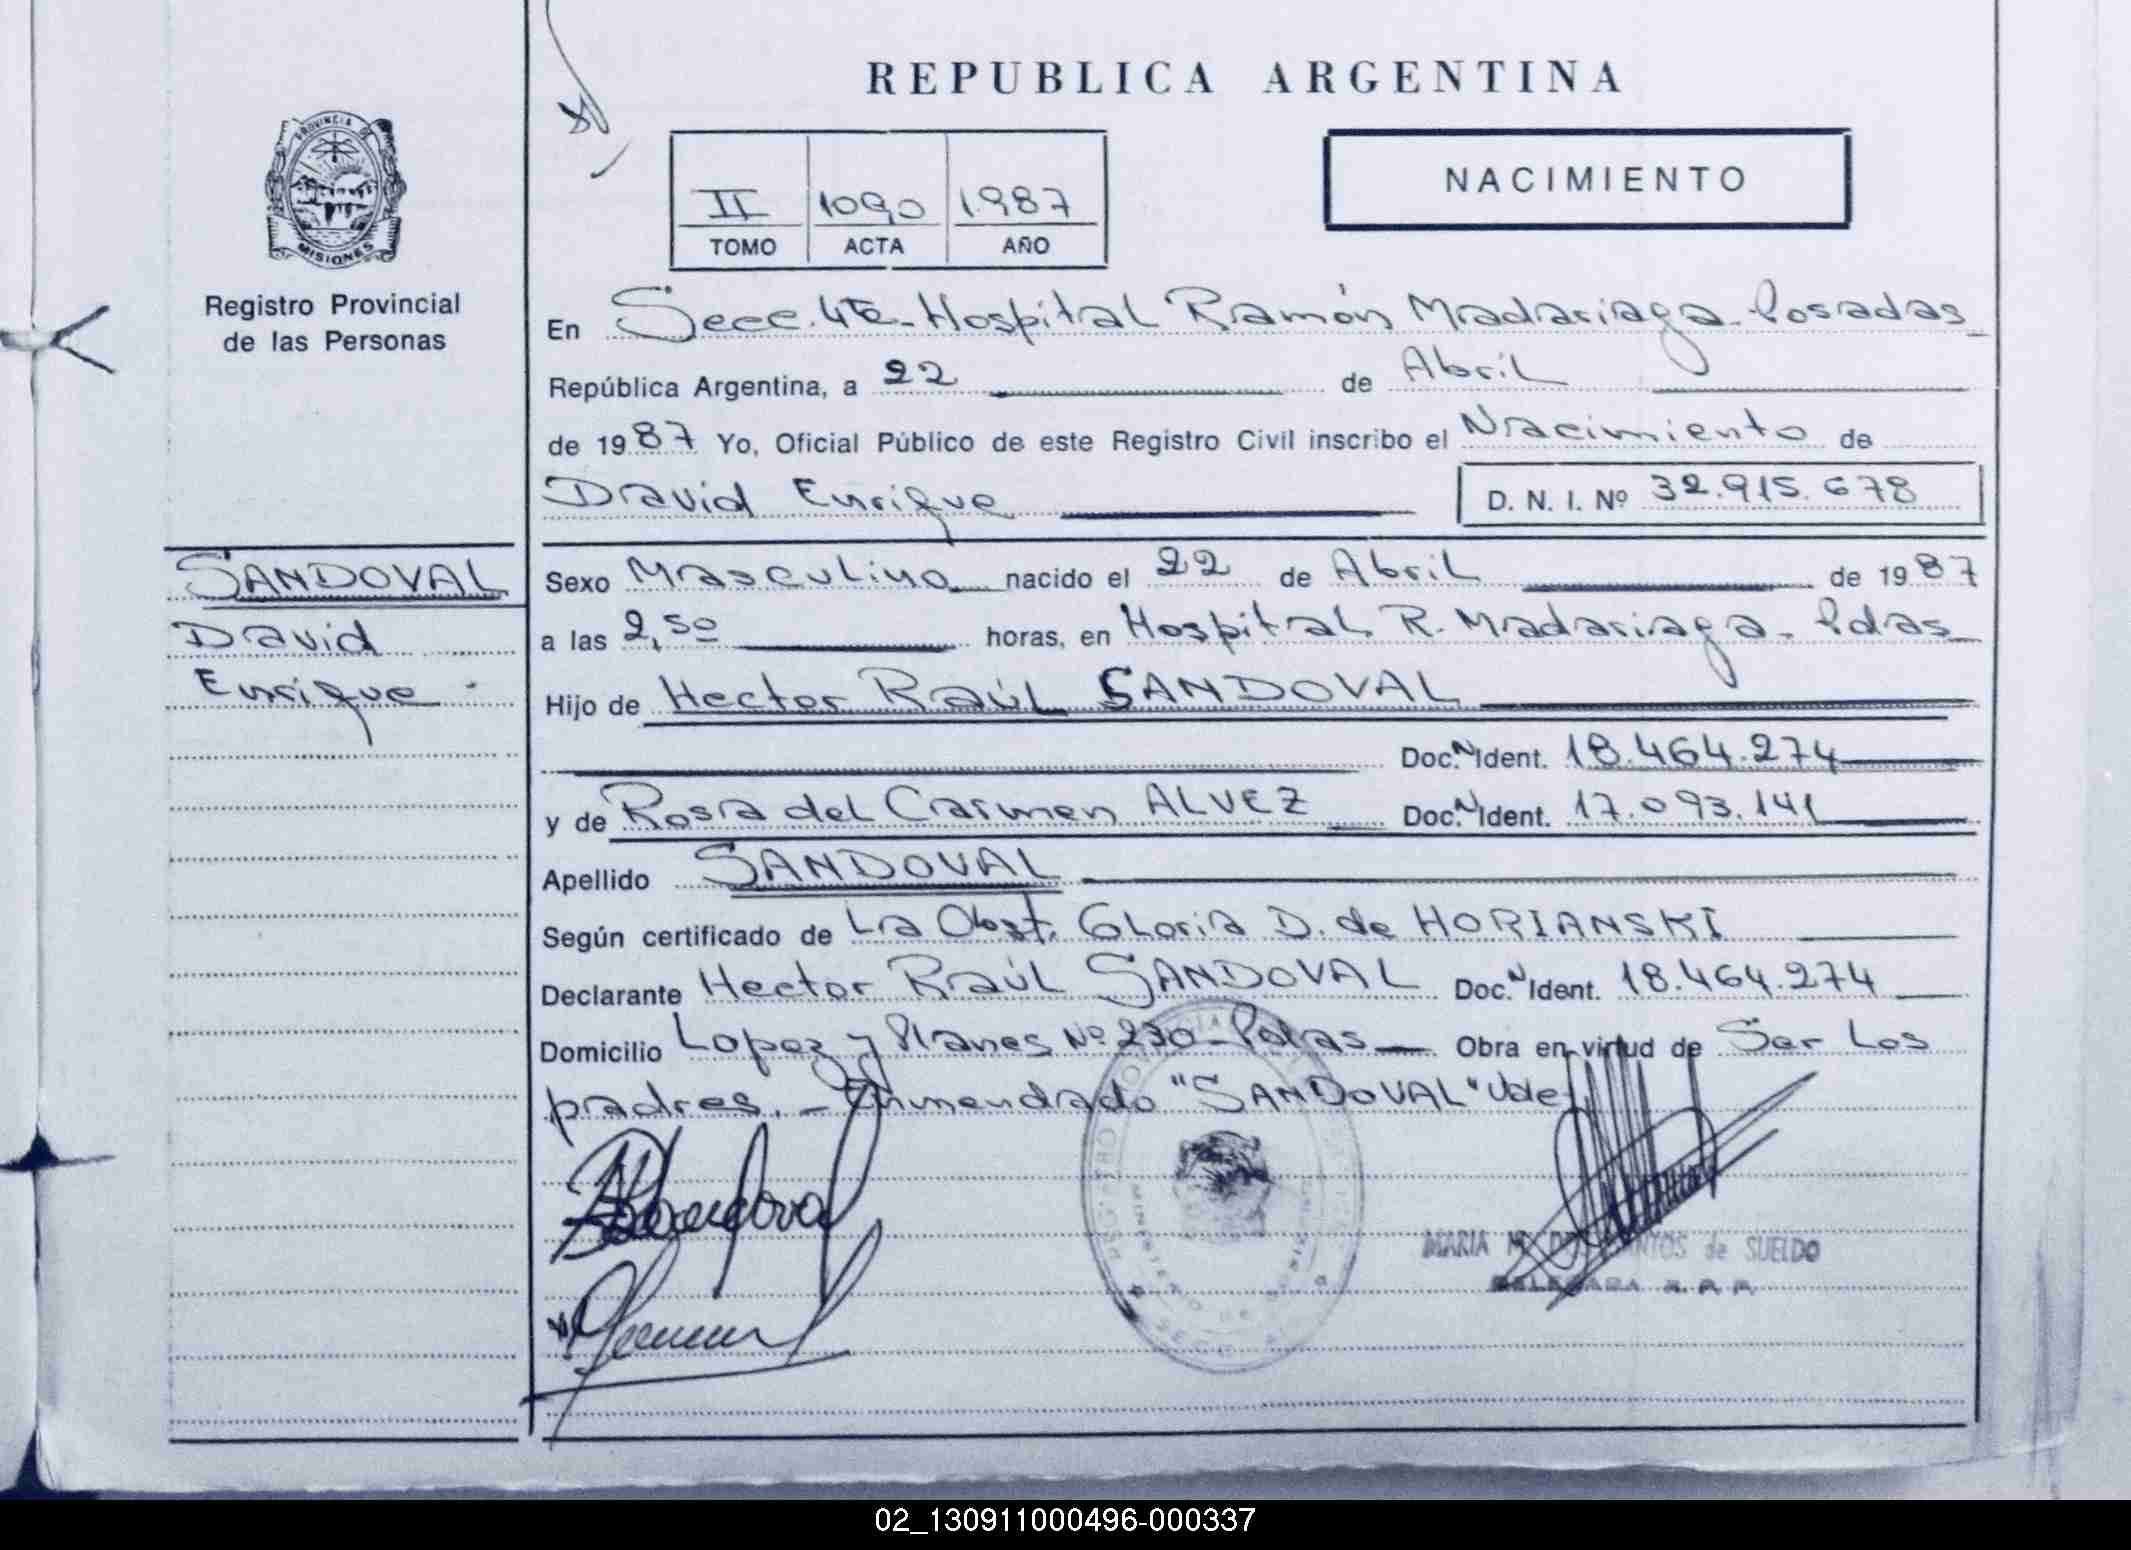 REPUBLICA ARGENTINA
PROVINCIA DE MISIONES
Registro Provincial
de las Personas
II 1090 1987
TOMO ACTA AÑO
NACIMIENTO
En Secc. 4ta - Hospital Ramón Madariaga - Posadas
República Argentina, a 22 de Abril
de 1987 Yo, Oficial Público de este Registro Civil inscribo el Nacimiento de
David Enrique D. N. I. Nº 32.915.678
SANDOVAL
David
Enrique
Sexo Masculino nacido el 22 de Abril de 1987
a las 2,50 horas, en Hospital R. Madariaga - Pdas
Hijo de Hector Raúl SANDOVAL
Doc. N Ident. 18.464.274
y de Rosa del Carmen ALVEZ Doc. N Ident. 17.093.141
Apellido SANDOVAL
Según certificado de La Obst. Gloria D. de HORIANSKI
Declarante Hector Raúl SANDOVAL Doc. N Ident. 18.464.274
Domicilio Lopez y Planes Nº 230 - Pdas Obra en virtud de Ser Los
padres. - Enmendado "SANDOVAL" Vale
MARIA de SUELDO
DELEGADA R. P. P.
02_130911000496-000337